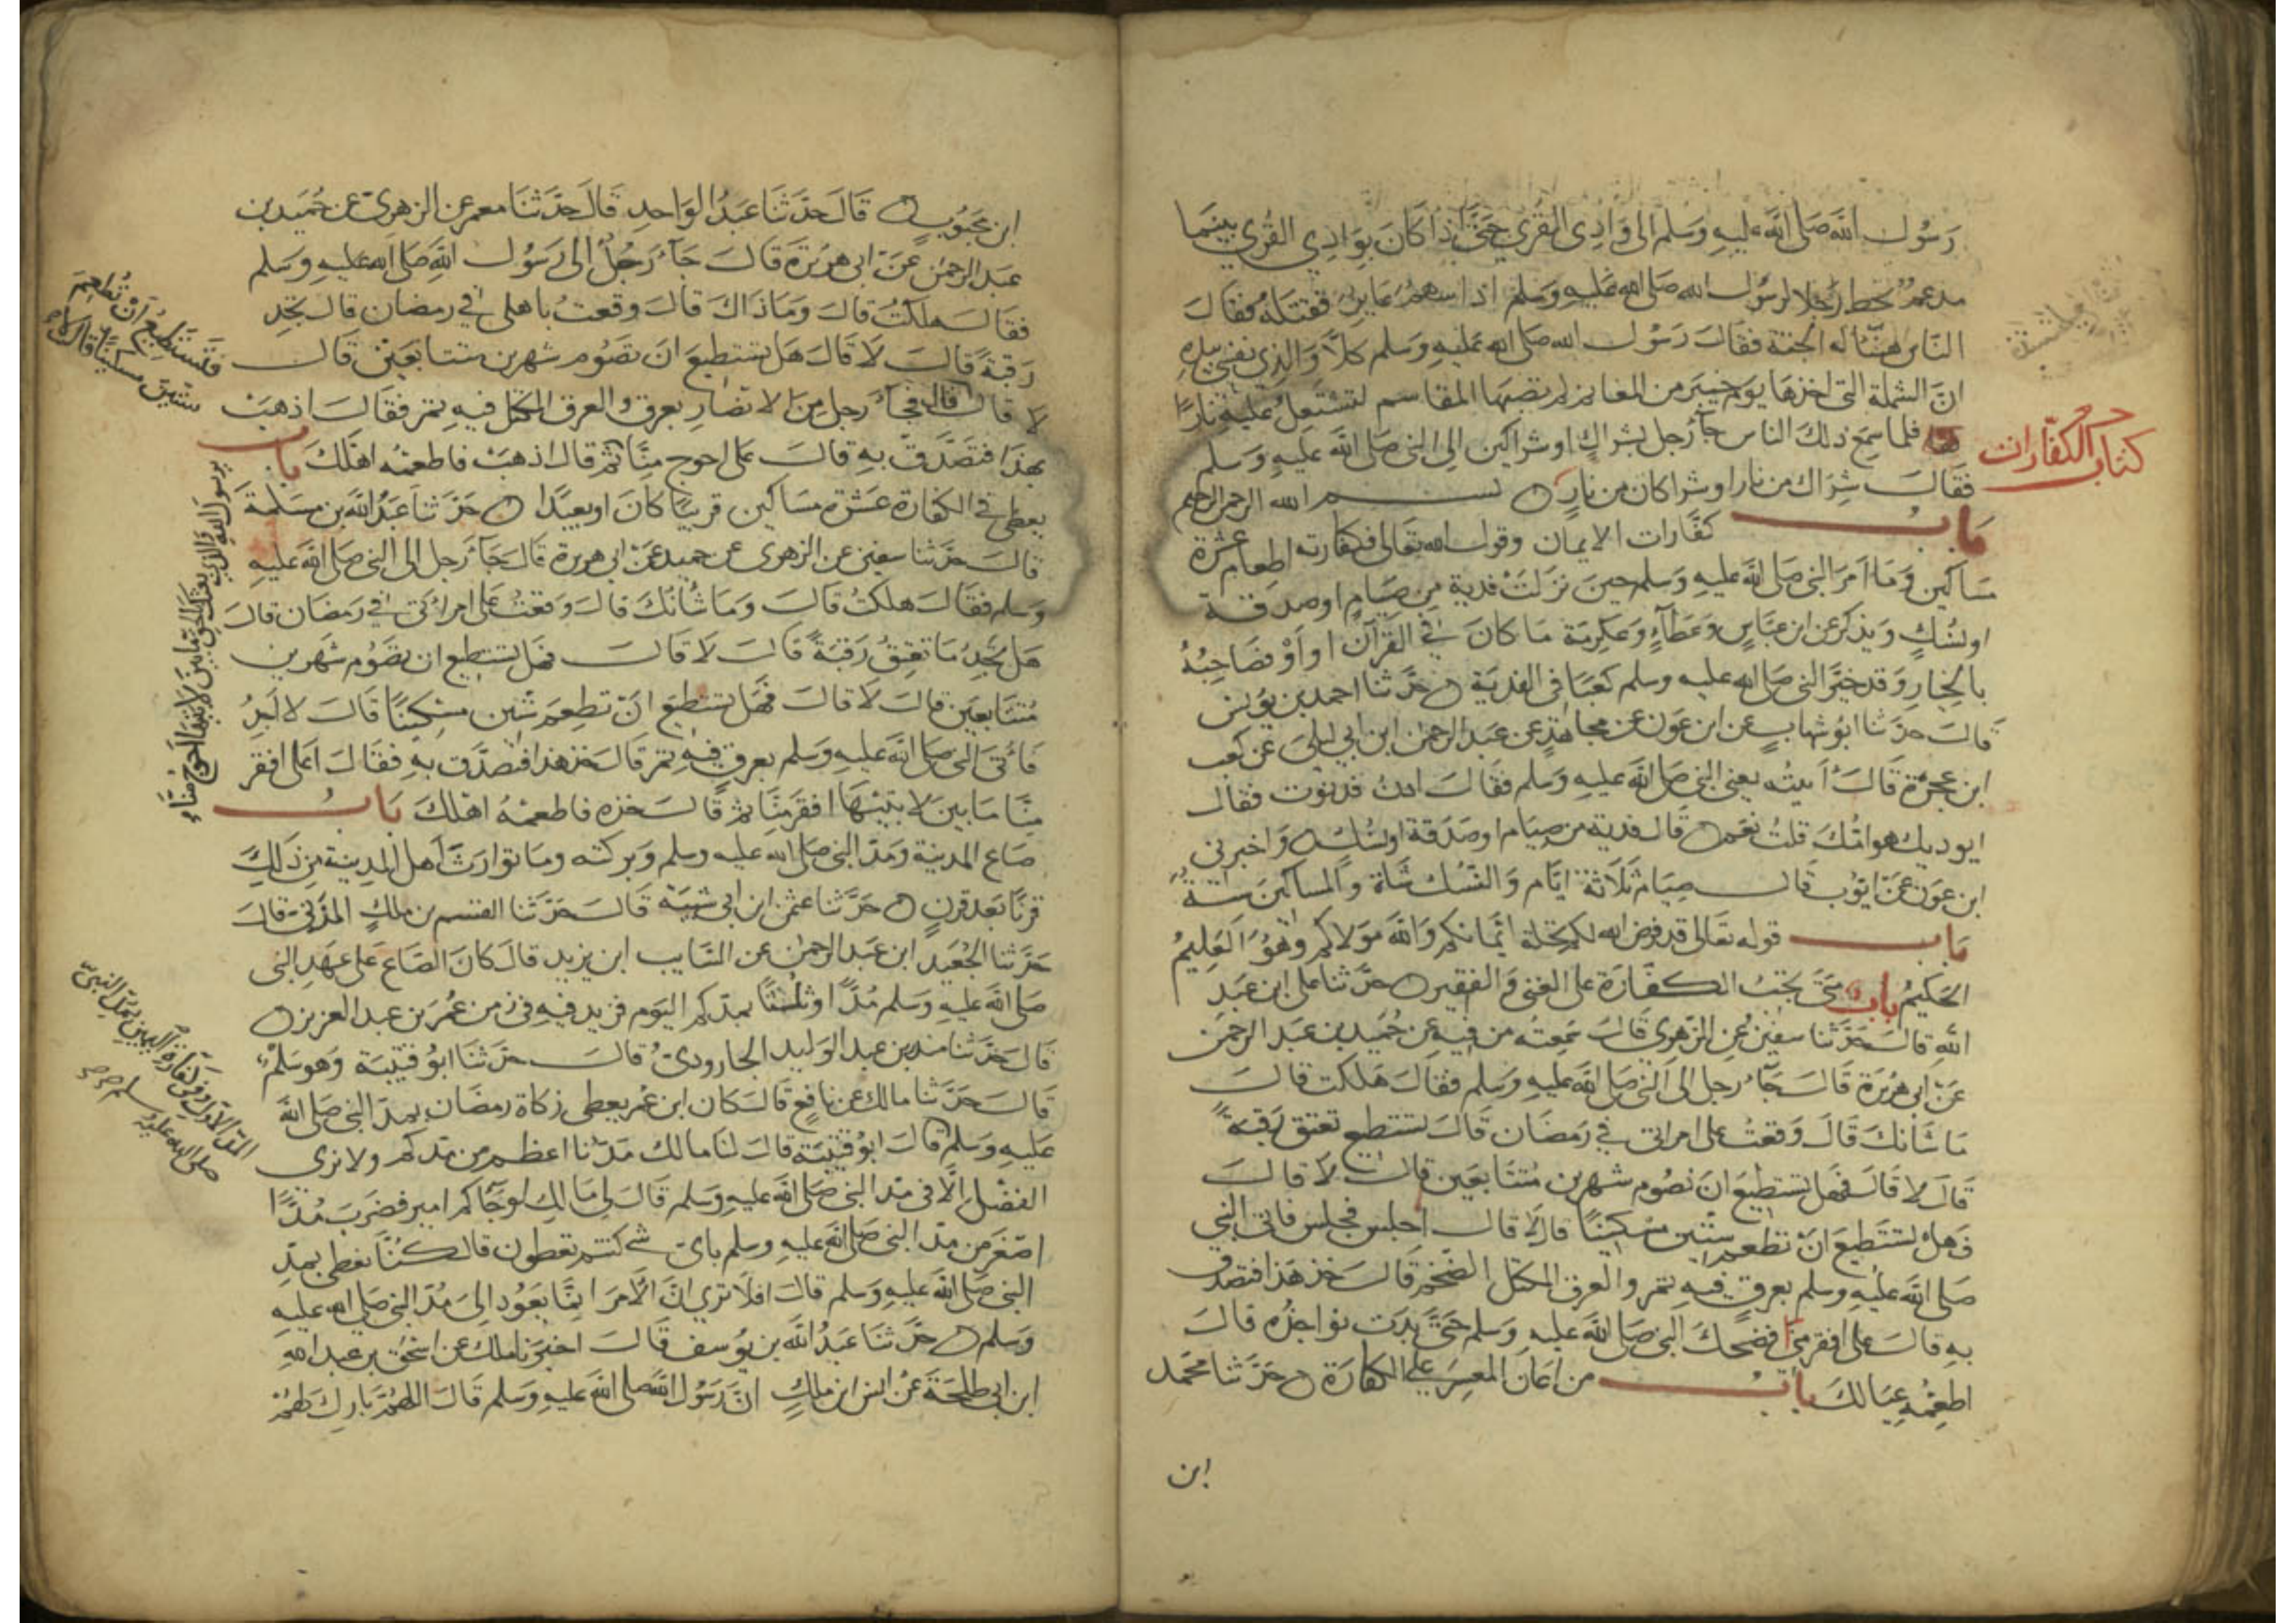 رسول الله صلى الله عليه وسلم الى وادي القرى حتى اذا كان بوادي القرى بينما
مدعم يحط رحلا لرسول الله صلى الله عليه وسلم اذا سهم عاير فقتله فقال
الناس هنيئا له الجنة فقال رسول الله صلى الله عليه وسلم كلا والذي نفسي بيده
ان الشملة التي اخذها يوم خيبر من المغانم لم تصبها المقاسم لتشتعل عليه نارا
فلما سمع ذلك الناس جاء رجل بشراك او شراكين الى النبي صلى الله عليه وسلم
كتاب الكفارات
فقال شراك من نار او شراكان من نار بسم الله الرحمن الرحيم
باب كفارات الايمان وقول الله تعالى فكفارته اطعام عشرة
مساكين وما امر النبي صلى الله عليه وسلم حين نزلت فدية من صيام او صدقة
او نسك ويذكر عن ابن عباس وعطاء وعكرمة ما كان في القرآن او او فصاحبه
بالخيار وقد خير النبي صلى الله عليه وسلم كعبا في الفدية حدثنا احمد بن يونس
قال حدثنا ابو شهاب عن ابن عون عن مجاهد عن عبد الرحمن ابن ابي ليلى عن كعب
ابن عجرة قال اتيته يعني النبي صلى الله عليه وسلم فقال ادن فدنوت فقال
ايوذيك هوامك قلت نعم قال فدية من صيام او صدقة او نسك واخبرني
ابن عون عن ايوب قال صيام ثلاثة ايام والنسك شاة والمساكين ستة
باب قوله تعالى قد فرض الله لكم تحلة ايمانكم والله مولاكم وهو العليم
الحكيم باب متى تجب الكفارة على الغني والفقير حدثنا علي ابن عبد
الله قال حدثنا سفين عن الزهري قال سمعته من فيه عن حميد بن عبد الرحمن
عن ابي هريرة قال جاء رجل الى النبي صلى الله عليه وسلم فقال هلكت قال
ما شانك قال وقعت على امراتي في رمضان قال تستطيع تعتق رقبة
قال لا قال فهل تستطيع ان تصوم شهرين متتابعين قال لا قال
فهل تستطيع ان تطعم ستين مسكينا قال لا قال اجلس فجلس فاتي النبي
صلى الله عليه وسلم بعرق فيه تمر والعرق المكتل الضخم قال خذ هذا فتصدق
به قال على افقر منا فضحك النبي صلى الله عليه وسلم حتى بدت نواجذه قال
اطعمه عيالك باب من اعان المعسر على الكفارة حدثنا محمد
ابن
ابن محبوب قال حدثنا عبد الواحد قال حدثنا معمر عن الزهري عن حميد بن
عبد الرحمن عن ابي هريرة قال جاء رجل الى رسول الله صلى الله عليه وسلم
فقال هلكت قال وما ذاك قال وقعت باهلي في رمضان قال تجد
رقبة قال لا قال هل تستطيع ان تصوم شهرين متتابعين قال
فتستطيع ان تطعم
ستين مسكينا قال لا
لا قال فجاء رجل من الانصار بعرق والعرق المكتل فيه تمر فقال اذهب
بهذا فتصدق به قال على احوج منا ثم قال اذهب فاطعمه اهلك باب
يرسول الله والذي بعثك بالحق ما بين لابتيها احوج منا
يعطي في الكفارة عشرة مساكين قريبا كان او بعيدا حدثنا عبد الله بن مسلمة
قال حدثنا سفين عن الزهري عن حميد عن ابي هريرة قال جاء رجل الى النبي صلى الله عليه
وسلم فقال هلكت قال وما شانك قال وقعت على امراتي في رمضان قال
هل تجد ما تعتق رقبة قال لا قال فهل تستطيع ان تصوم شهرين
متتابعين قال لا قال فهل تستطيع ان تطعم ستين مسكينا قال لا اجد
فاتى النبي صلى الله عليه وسلم بعرق فيه تمر قال خذ هذا فتصدق به فقال اعلى افقر
منا ما بين لابتيها افقر منا ثم قال خذه فاطعمه اهلك باب
صاع المدينة ومد النبي صلى الله عليه وسلم وبركته وما توارث اهل المدينة من ذلك
قرنا بعد قرن حدثنا عثمن ابن ابي شيبة قال حدثنا القسم بن ملك المزني قال
حدثنا الجعيد ابن عبد الرحمن عن السايب ابن يزيد قال كان الصاع على عهد النبي
صلى الله عليه وسلم مدا وثلثا بمدكم اليوم فزيد فيه في زمن عمر بن عبد العزيز
قال حدثنا منذر بن عبد الوليد الجارودي قال حدثنا ابو قتيبة وهو سلم
قال حدثنا مالك عن نافع قال كان ابن عمر يعطي زكاة رمضان بمد النبي صلى الله
المد الاول وفي كفارة اليمين بمد النبي
صلى الله عليه وسلم
عليه وسلم قال ابو قتيبة قال لنا مالك مدنا اعظم من مدكم ولا نرى
الفضل الا في مد النبي صلى الله عليه وسلم قال لي مالك لو جاكم امير فضرب مدا
اصغر من مد النبي صلى الله عليه وسلم باي شي كنتم تعطون قال كنا نعطي بمد
النبي صلى الله عليه وسلم قال افلا ترى ان الامر انما يعود الى مد النبي صلى الله عليه
وسلم حدثنا عبد الله بن يوسف قال اخبرنا ملك عن اسحق بن عبد الله
ابن ابي طلحة عن انس ابن ملك ان رسول الله صلى الله عليه وسلم قال اللهم بارك لهم